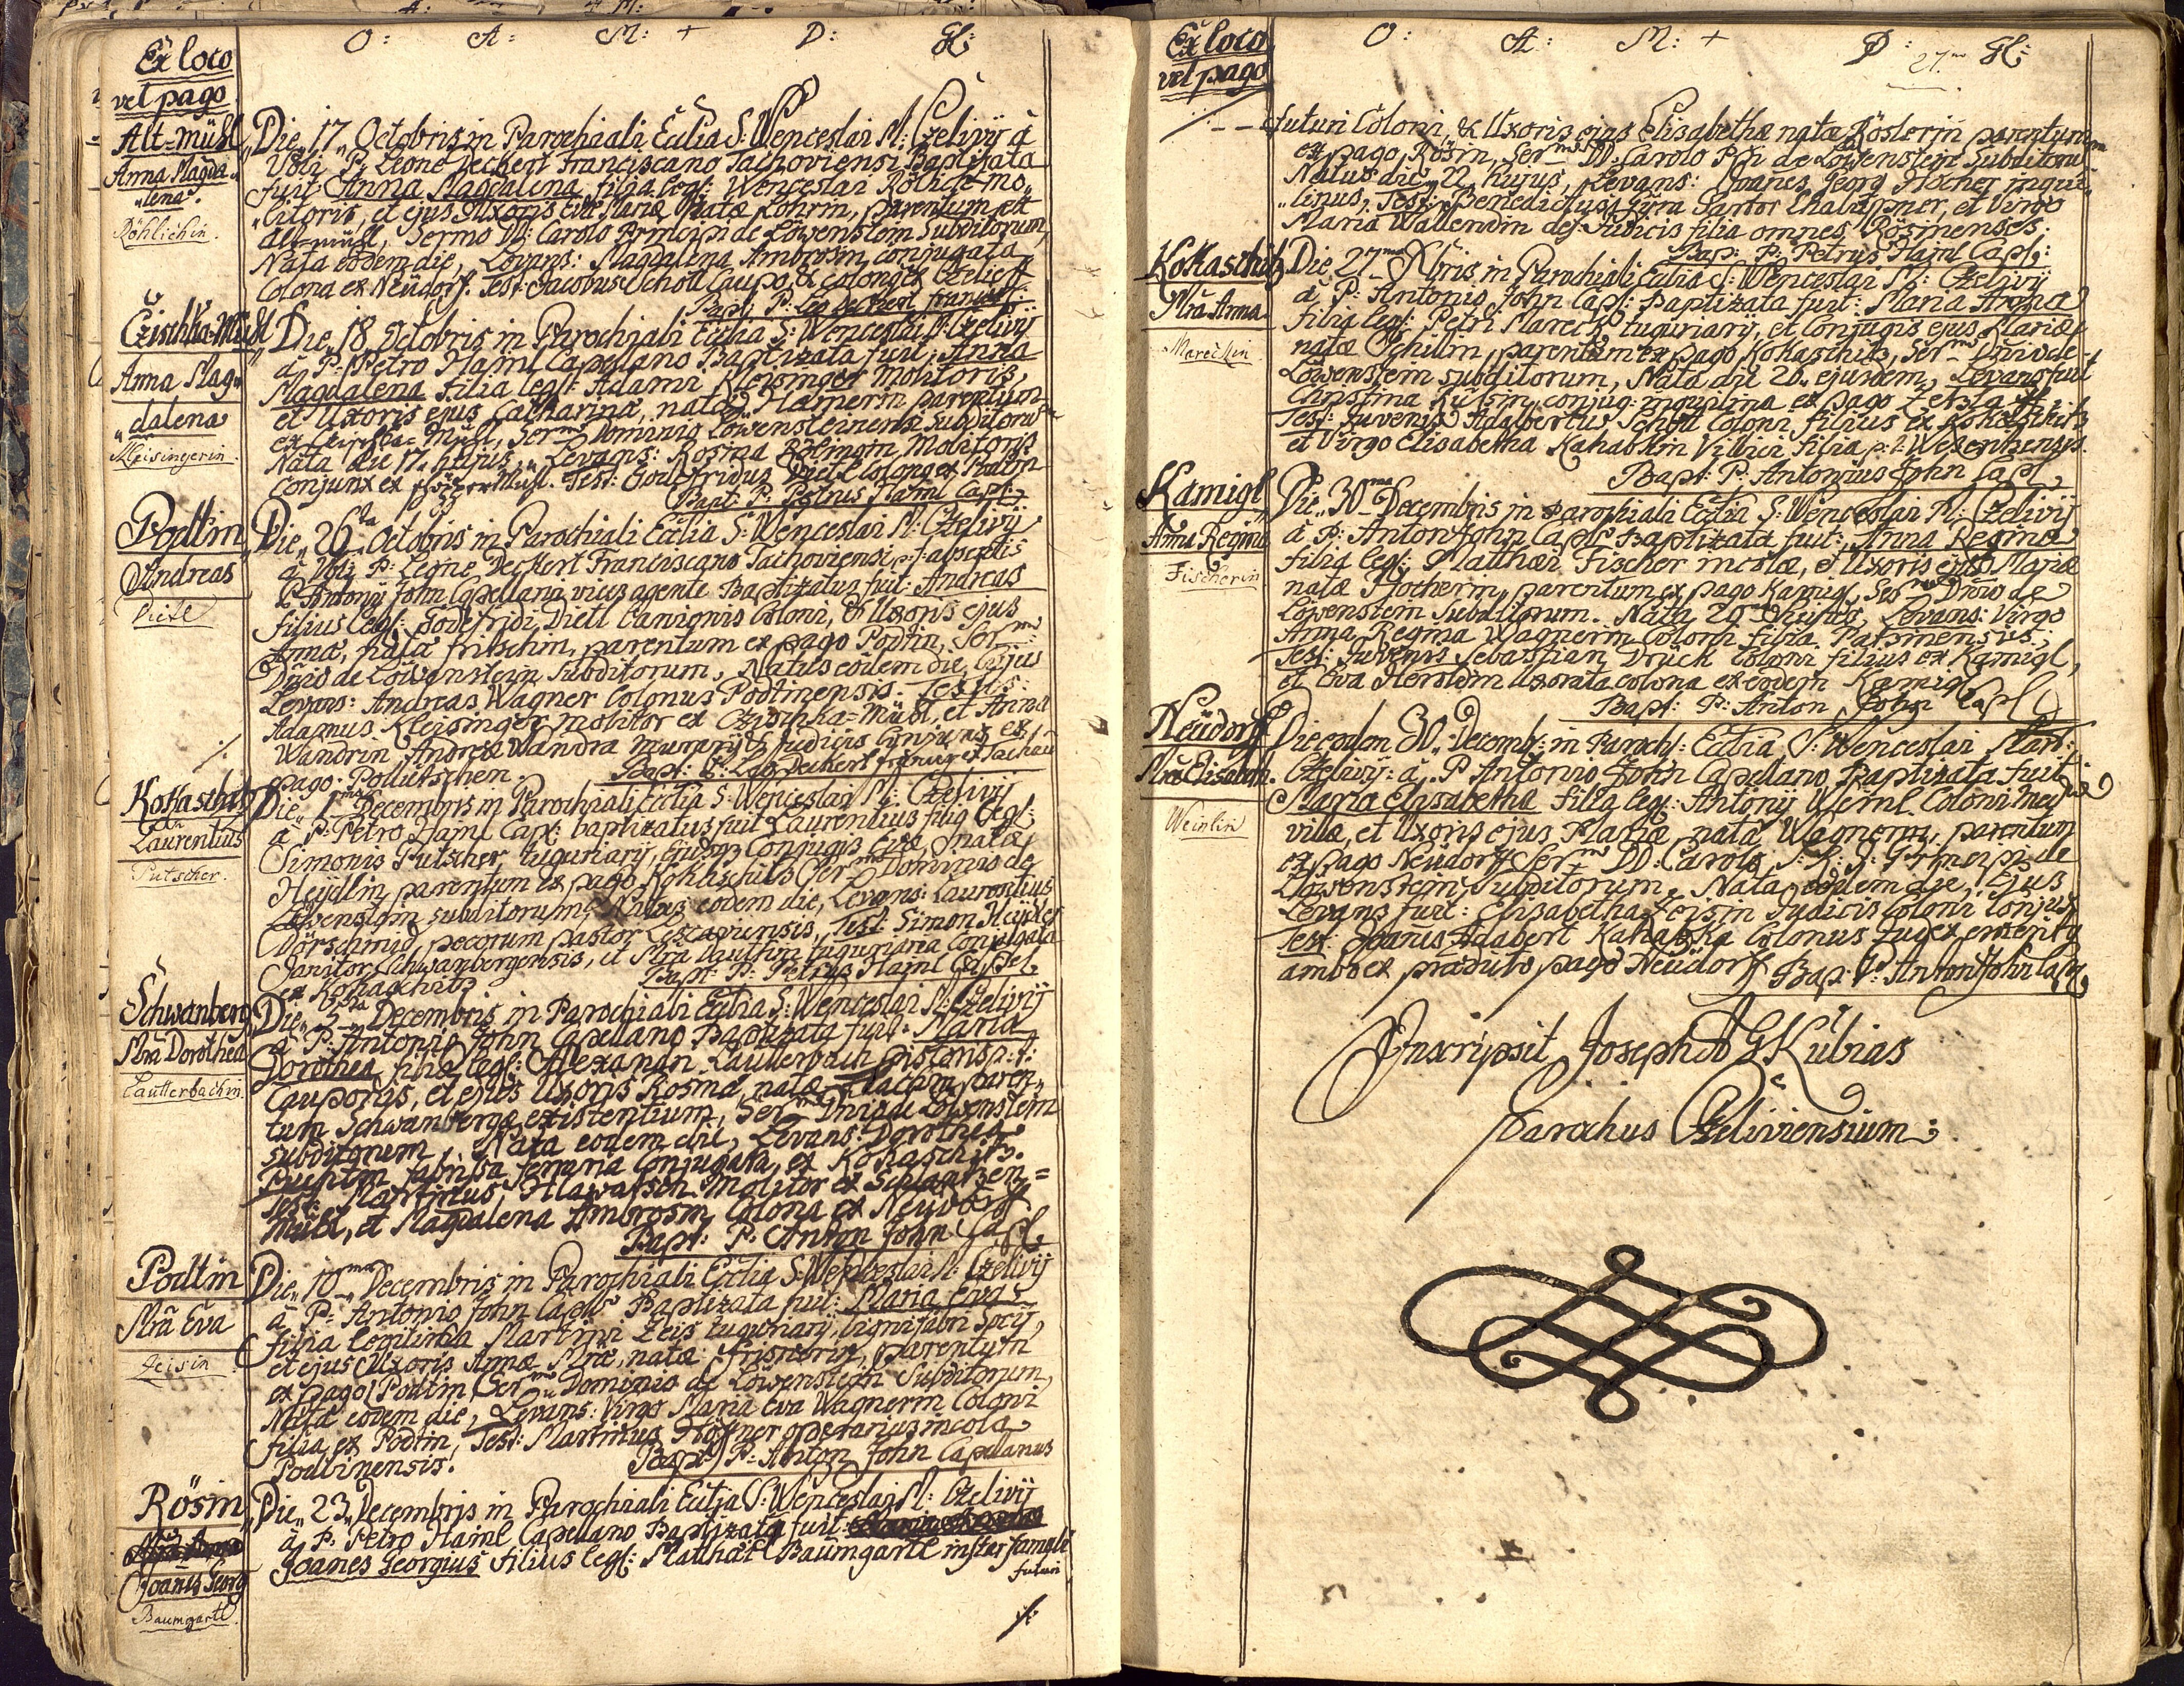 O: A: M: + D: Gl:
Ex loco
vel pago
Alt=Mühl
Anna Magda
lena.
Röhlichin.
Die 17 Octobris in Parochiali Ecclia S: Wenceslai M: Czelivij à
Vbli P: Leone Deckert Franciscano Tachoviensi Baptizata
fuit: Anna Magdalena filia legl: Wenceslai Röhlich mo,,
,,litoris, et ejus Uxoris Evæ Mariæ Natæ Lohrin, parentum ex
alt=mühl, Sermo DD: Carolo Principi de Löwenstein Subditorum,
Nata eodem die, Levans: Magdalena Ambrosin conjugata
Colona ex Neüdorf. Test: Jacobus Scholl Caupo, & colonus
Bapt: P: Leo Deckert
Czischka=Mühl
Anna Mag,,
,,dalena
Kleisingerin.
Die 18 Octobris in Parochiali Ecclia S: Wenceslai M: Czelivij
à P: Petro Haml Capellano Baptizata fuit: Anna
Magdalena filia legl: Adami Kleisinger Molitoris,
et Uxoris ejus Catharina, natæ Hamerin parentum
ex Czischka= Mühl, Sermo Dominio Löwensteinensi Subditorum
Nata die 17 hujus, Levans: Rosina Molitoris
Conjunx ex Test: Gottfridus Dietl Colonus ex Podtin
Bapt: P: Petrus Haml Capl:
Podtin
Andreas
Dietl
Die 26ta Octobris in Parochiali Ecclia S: Wenceslai M: Czelivij
à Vbli P: Leone Deckert Franciscano Tachoviensi p:t: absentis
P: Antonij John Capellani vices agente Baptizatus fuit: Andreas
filius legl: Godefridi Dietl Coloni, & Uxoris ejus
Anna, nata Fritschin, parentum ex pago Podtin, Sermo
Dñio de Löwenstein Subditorum, Natus eodem die, Cujus
Levans: Andreas Wagner Colonus Podtinensis. Testes:
Adamus Kleisinger molitor ex Czischka=Mühl, et Anna
Wandrin Andreæ Wandra murarij & Judicis Conjunx ex
pago Pollutschen. Bapt: P: Leo Deckert ex Tachau
Kokaschitz
Laurentius
Putscher.
Die 1ma Decembris in Parochiali Ecclia S: Wenceslai M: Czelivij
à P: Petro Haml Cap: baptizatus fuit Laurentius filig legl:
Simonis Putscher tuguriarij, Conjugis Evæ, natæ
Heydlin, parentum ex pago Kohlschitz Sermo Dominio de
Löwenstein subditorum, Natus eodem die, Levans: Laurentius
Dörschmid, pecorum pastor, Test: Simon
Janitor Schwanbergensis, et Mra tuguriaria Conjugata
ex Kokaschitz Bapt: P: Petrus Haml Capel.
Schwanberg
Mra Dorothea
Lautterbachin.
Die 5ta Decembris in Parochiali Ecclia S: Wenceslai M: Czelivij
à P: Antonio John Capellano Baptizata fuit: Maria
Dorothea filia legl: Alexandri Lautterbach pistoris p: t:
Cauponis, et ejus Uxoris Rosina, natæ paren,,
tum Schwanbergæ existentium, Sermo Dñio de Löwenstein
subditorum, Nata eodem die, Levans: Dorothea
conjugata, ex Kokaschitz.
Test: Martinus Molitor ex
Mühl, et Magdalena Ambrosin Colona ex Neüdorff
Bapt: P: Anton John Capl.
Podtin
Mra Eva
Zeisin
Die 10ma Decembris in Parochiali Ecclia S: Wenceslai M: Czelivij
à P: Antonio John Baptizata fuit: Maria Eva
filia legitima Martini Zeis tuguriarij, lignifabri socij,
et ejus Uxoris Annæ Mræ, natæ parentum
ex pago Podtin Sermo Dominio de Löwenstein Subditorum,
Nata eodem die, Levans: Virgo Maria Eva Wagnerin Coloni
filia ex Podtin, Test: Martinus operarius incola
Podtinensis. Bapt: P: Anton John Capellanus
Rösin
Joañes Georg
Baumgartl
Die 23 Decembris in Parochiali Ecclia S: Wenceslai M: Czelivij
à P: Petro Haml Capellano Baptizatg fuit:
Joanes Georgius filius legl: Matthäi Baumgartl
futuri
./.
Ex loco
vel pago
O: A: M: + D: 27. Gl:
futuri Coloni, & Uxoris ejus Elisabethæ natæ Röslerin parentum
ex pago Rösin, Sermo DD: Carolo Ppi de Löwenstein Subditorum
Natus die 22 hujus, Levans: Joañes Georg inqui,,
,,linus, Test: Benedictus Sartor, et Virgo
Maria Wallendin Judicis filia omnes Rösinenses.
Bapt: P: Petrus Haml Capl:
Kokaschitz
Mra Anna
Mareckin
Die 27ma Xbris in Parochiali Ecclia S: Wenceslai M: Czelivij
à P: Antonio John Capl: Baptizata fuit: Maria Anna
filia legl: Petri Mareck tuguriarij, et Conjugis ejus Mariæ
natæ Schillin, parentum ex pago Kokaschitz, Sermo Dñio de
Löwenstein subditorum, Nata die 26 ejusdem, Levans fuit
Christina conjug: inquilina ex pago
Test: Juvenis Adalbertus Scholl Coloni filius ex Kokaschitz
et Virgo Elisabetha Kahabkin Villici filia p:t:
Bapt: P: Antonius John Capl.
Kamigl
Anna Regina
Fischerin
Die 30ma Decembris in Parochiali Ecclia S: Wenceslai M: Czelivij
à P: Anton John Capl: Baptizata fuit: Anna Regina
filia legl: Matthæi Fischer incolæ, et Uxoris ejus Mariæ
natæ parentum ex pago Kamigl, Sermo Dñio de
Löwenstein Subditorum. Nata hujus, Levans: Virgo
Anna Regina Wagnerin Coloni filia
Test: Juvenis Sebastian Drück Coloni filius ex Kamigl,
et Eva Heroldin Uxorata colona ex eodem Kamigl
Bapt: P: Anton John Capl
Neüdorff
Mra Elisabeth.
Weinlin
Die eodem 30 Decemb: in Parochl: Ecclia S: Wenceslai Mart:
Czelivij: à P Antonio John Capellano Baptizata fuit
Maria Elisabetha filia legl: Antonij Weinl Coloni
villæ, et Uxoris ejus Mariæ natæ Wagnerin, parentum
ex pago Neüdorff Sermo DD: Carolo S: R: J: de
Löwenstein, Subditorum, Nata eodem die, Ejus
Levans fuit: Elisabetha Zeisin Judicis Coloni Conjux
Test: Joañes Adalbert Kahabka Colonus
ambo ex prædicto pago Neüdorff Bap: P: Anton John Cap:
Inscripsit Joseph A G Kubias
Parochus Czeliviensium: